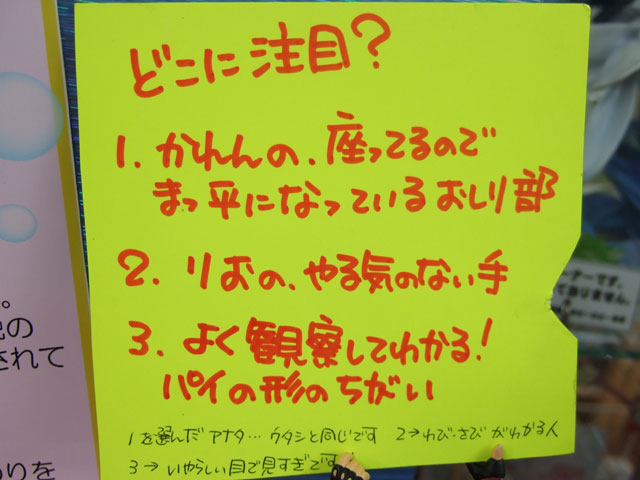 どこに注目?
1. かれんの、座ってるので
まっ平になっているおしり部
2. りおの、やる気のない手
3. よく観察してわかる!
パイの形のちがい
1を選んだアナタ…ワタシと同じです 2→わび・さびがわかる人
3→いやらしい目で見すぎです
。
されて
りを
ーナーです。
ません。